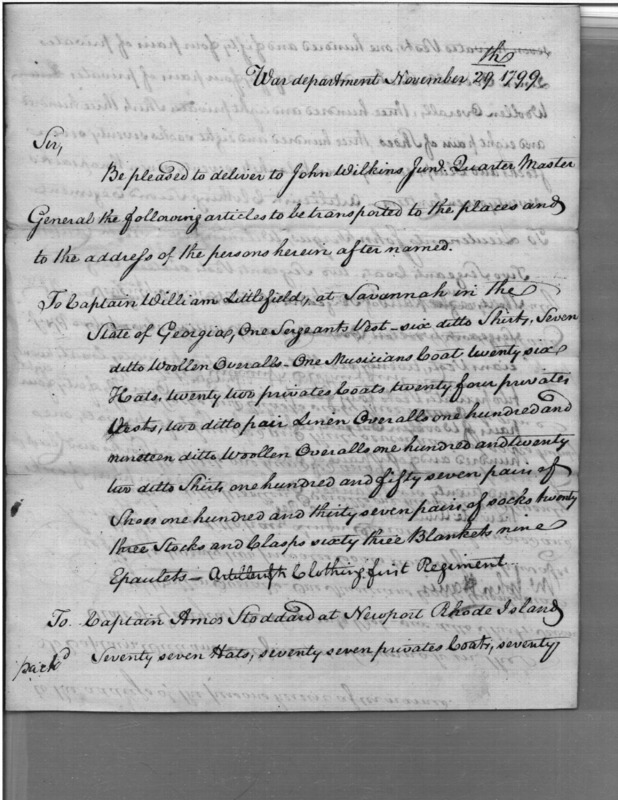 War department November 29th 1799.
Sir,
Be pleased to deliver to John Wilkins Junr. Quarter Master
General the following articles to be transported to the places and
to the address of the persons herein after named.
To Captain William Littlefield, at Savannah in the
State of Georgia, One Sergeants Vest - six ditto Shirts, Seven
ditto Woollen Overalls - One Musicians Coat twenty six
Hats, twenty two privates Coats twenty four privates
Vests, two ditto pair Linen Overalls one hundred and
nineteen ditto Woollen Overalls one hundred and twenty
two ditto Shirts one hundred and fifty seven pairs of
Shoes one hundred and thirty seven pairs of socks twenty
three Stocks and Clasps sixty three Blankets nine
Epaulets - Artillerist Clothing first Regiment
To Captain Amos Stoddard at Newport Rhode Island
pack'd
Seventy seven Hats, seventy seven privates Coats, seventy